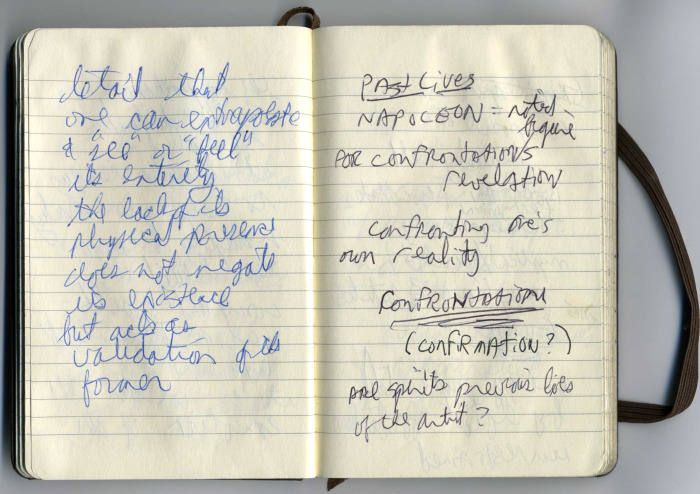 detail that
one can extrapolate
& "see" or "feel"
its entirety
the lack of its
physical presence
does not negate
its existence
but acts as
validation of its
former
PAST LIVES
NAPOLEON = noted
figure
FOR CONFRONTATIONS
revelation
confronting one's
own reality
CONFRONTATION
(CONFIRMATION?)
ARE spirits previous lives
of the artist?